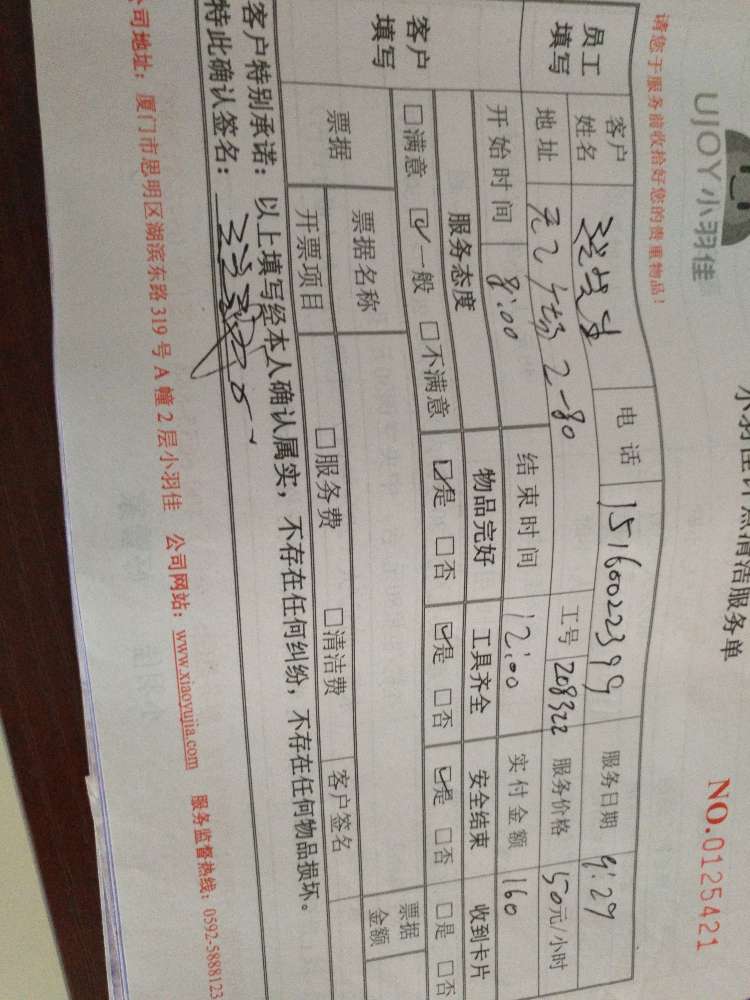 UJOY小羽佳
洁服务单
NO.0125421
请您于服务前收拾好您的贵重物品!
员工填写
客户姓名
电话 15160022399
服务日期 9:29
地址 2-80
工号 208322
服务价格 50元/小时
开始时间 8:00
结束时间 12:00
实付金额 160
客户填写
服务态度 物品完好 工具齐全 安全结束 收到卡片
□满意 ☑一般 □不满意 ☑是 □否 ☑是 □否 ☑是 □否 □是 □否
票据 票据名称 票据金额
开票项目 □服务费 □清洁费 客户签名
客户特别承诺:以上填写经本人确认属实,不存在任何纠纷,不存在任何物品损坏。
特此确认签名:
公司地址:厦门市思明区湖滨东路319号A幢2层小羽佳 公司网站:www.xiaoyujia.com 服务监督热线:0592-5888123